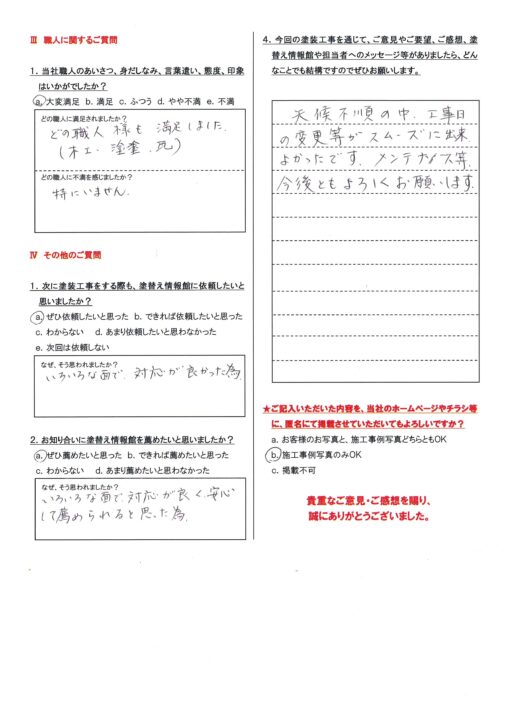 Ⅲ 職人に関するご質問
1. 当社職人のあいさつ、身だしなみ、言葉遣い、態度、印象
はいかがでしたか？
a. 大変満足 b. 満足 c. ふつう d. やや不満 e. 不満
どの職人に満足されましたか？
どの職人様も満足しました。
(木工・塗塗、瓦)
どの職人に不満を感じましたか？
特にいません。
Ⅳ その他のご質問
1. 次に塗装工事をする際も、塗替え情報館に依頼したいと
思いましたか？
a. ぜひ依頼したいと思った b. できれば依頼したいと思った
c. わからない d. あまり依頼したいと思わなかった
e. 次回は依頼しない
なぜ、そう思われましたか？
いろいろな面で、対応が良かった為
2. お知り合いに塗替え情報館を薦めたいと思いましたか？
a. ぜひ薦めたいと思った b. できれば薦めたいと思った
c. わからない d. あまり薦めたいと思わなかった
なぜ、そう思われましたか？
いろいろな面で、対応が良く、安心
して薦められると思った為。
4. 今回の塗装工事を通じて、ご意見やご要望、ご感想、塗
替え情報館や担当者へのメッセージ等がありましたら、どん
なことでも結構ですのでぜひお願いします。
天候不順の中、工事日
の変更等がスムーズに出来
よかったです。メンテナンス等、
今後ともよろしくお願いします。
★ご記入いただいた内容を、当社のホームページやチラシ等
に、匿名にて掲載させていただいてもよろしいですか？
a. お客様のお写真と、施工事例写真どちらともOK
b. 施工事例写真のみOK
c. 掲載不可
貴重なご意見・ご感想を賜り、
誠にありがとうございました。